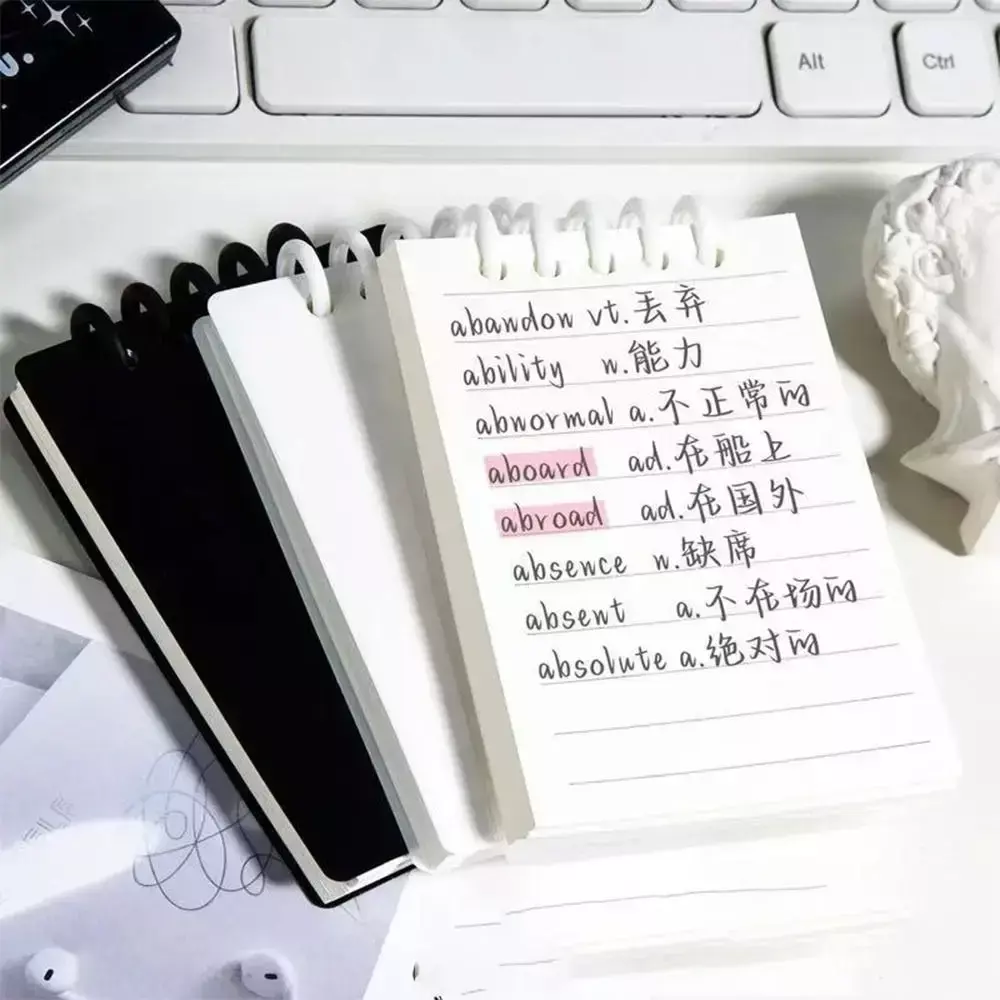 Alt
Ctrl
abandon vt.丢弃
ability n.能力
abnormal a.不正常的
aboard ad.在船上
abroad ad.在国外
absence n.缺席
absent a.不在场的
absolute a.绝对的